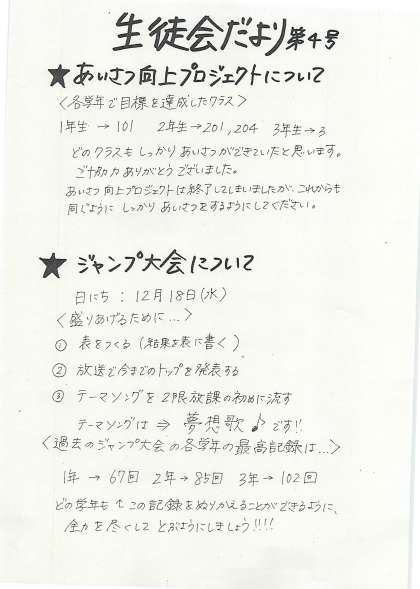 生徒会だより第4号
★あいさつ向上プロジェクトについて
〈各学年で目標を達成したクラス〉
1年生 → 101 2年生→201,204 3年生→3
どのクラスもしっかりあいさつができていたと思います。
ご協力ありがとうございました。
あいさつ向上プロジェクトは終了してしまいましたが、これからも
同じようにしっかりあいさつをするようにしてください。
★ ジャンプ大会について
日にち : 12月18日(水)
〈盛りあげるために…〉
① 表をつくる (結果を表に書く)
② 放送で今までのトップを発表する
③ テーマソングを2限放課の初めに流す
テーマソングは ⇒ 夢想歌♪です!!
〈過去のジャンプ大会の各学年の最高記録は…〉
1年 → 67回 2年→85回 3年→102回
どの学年も ↑ この記録をぬりかえることができるように、
全力を尽くしてとぶようにしましょう!!!!